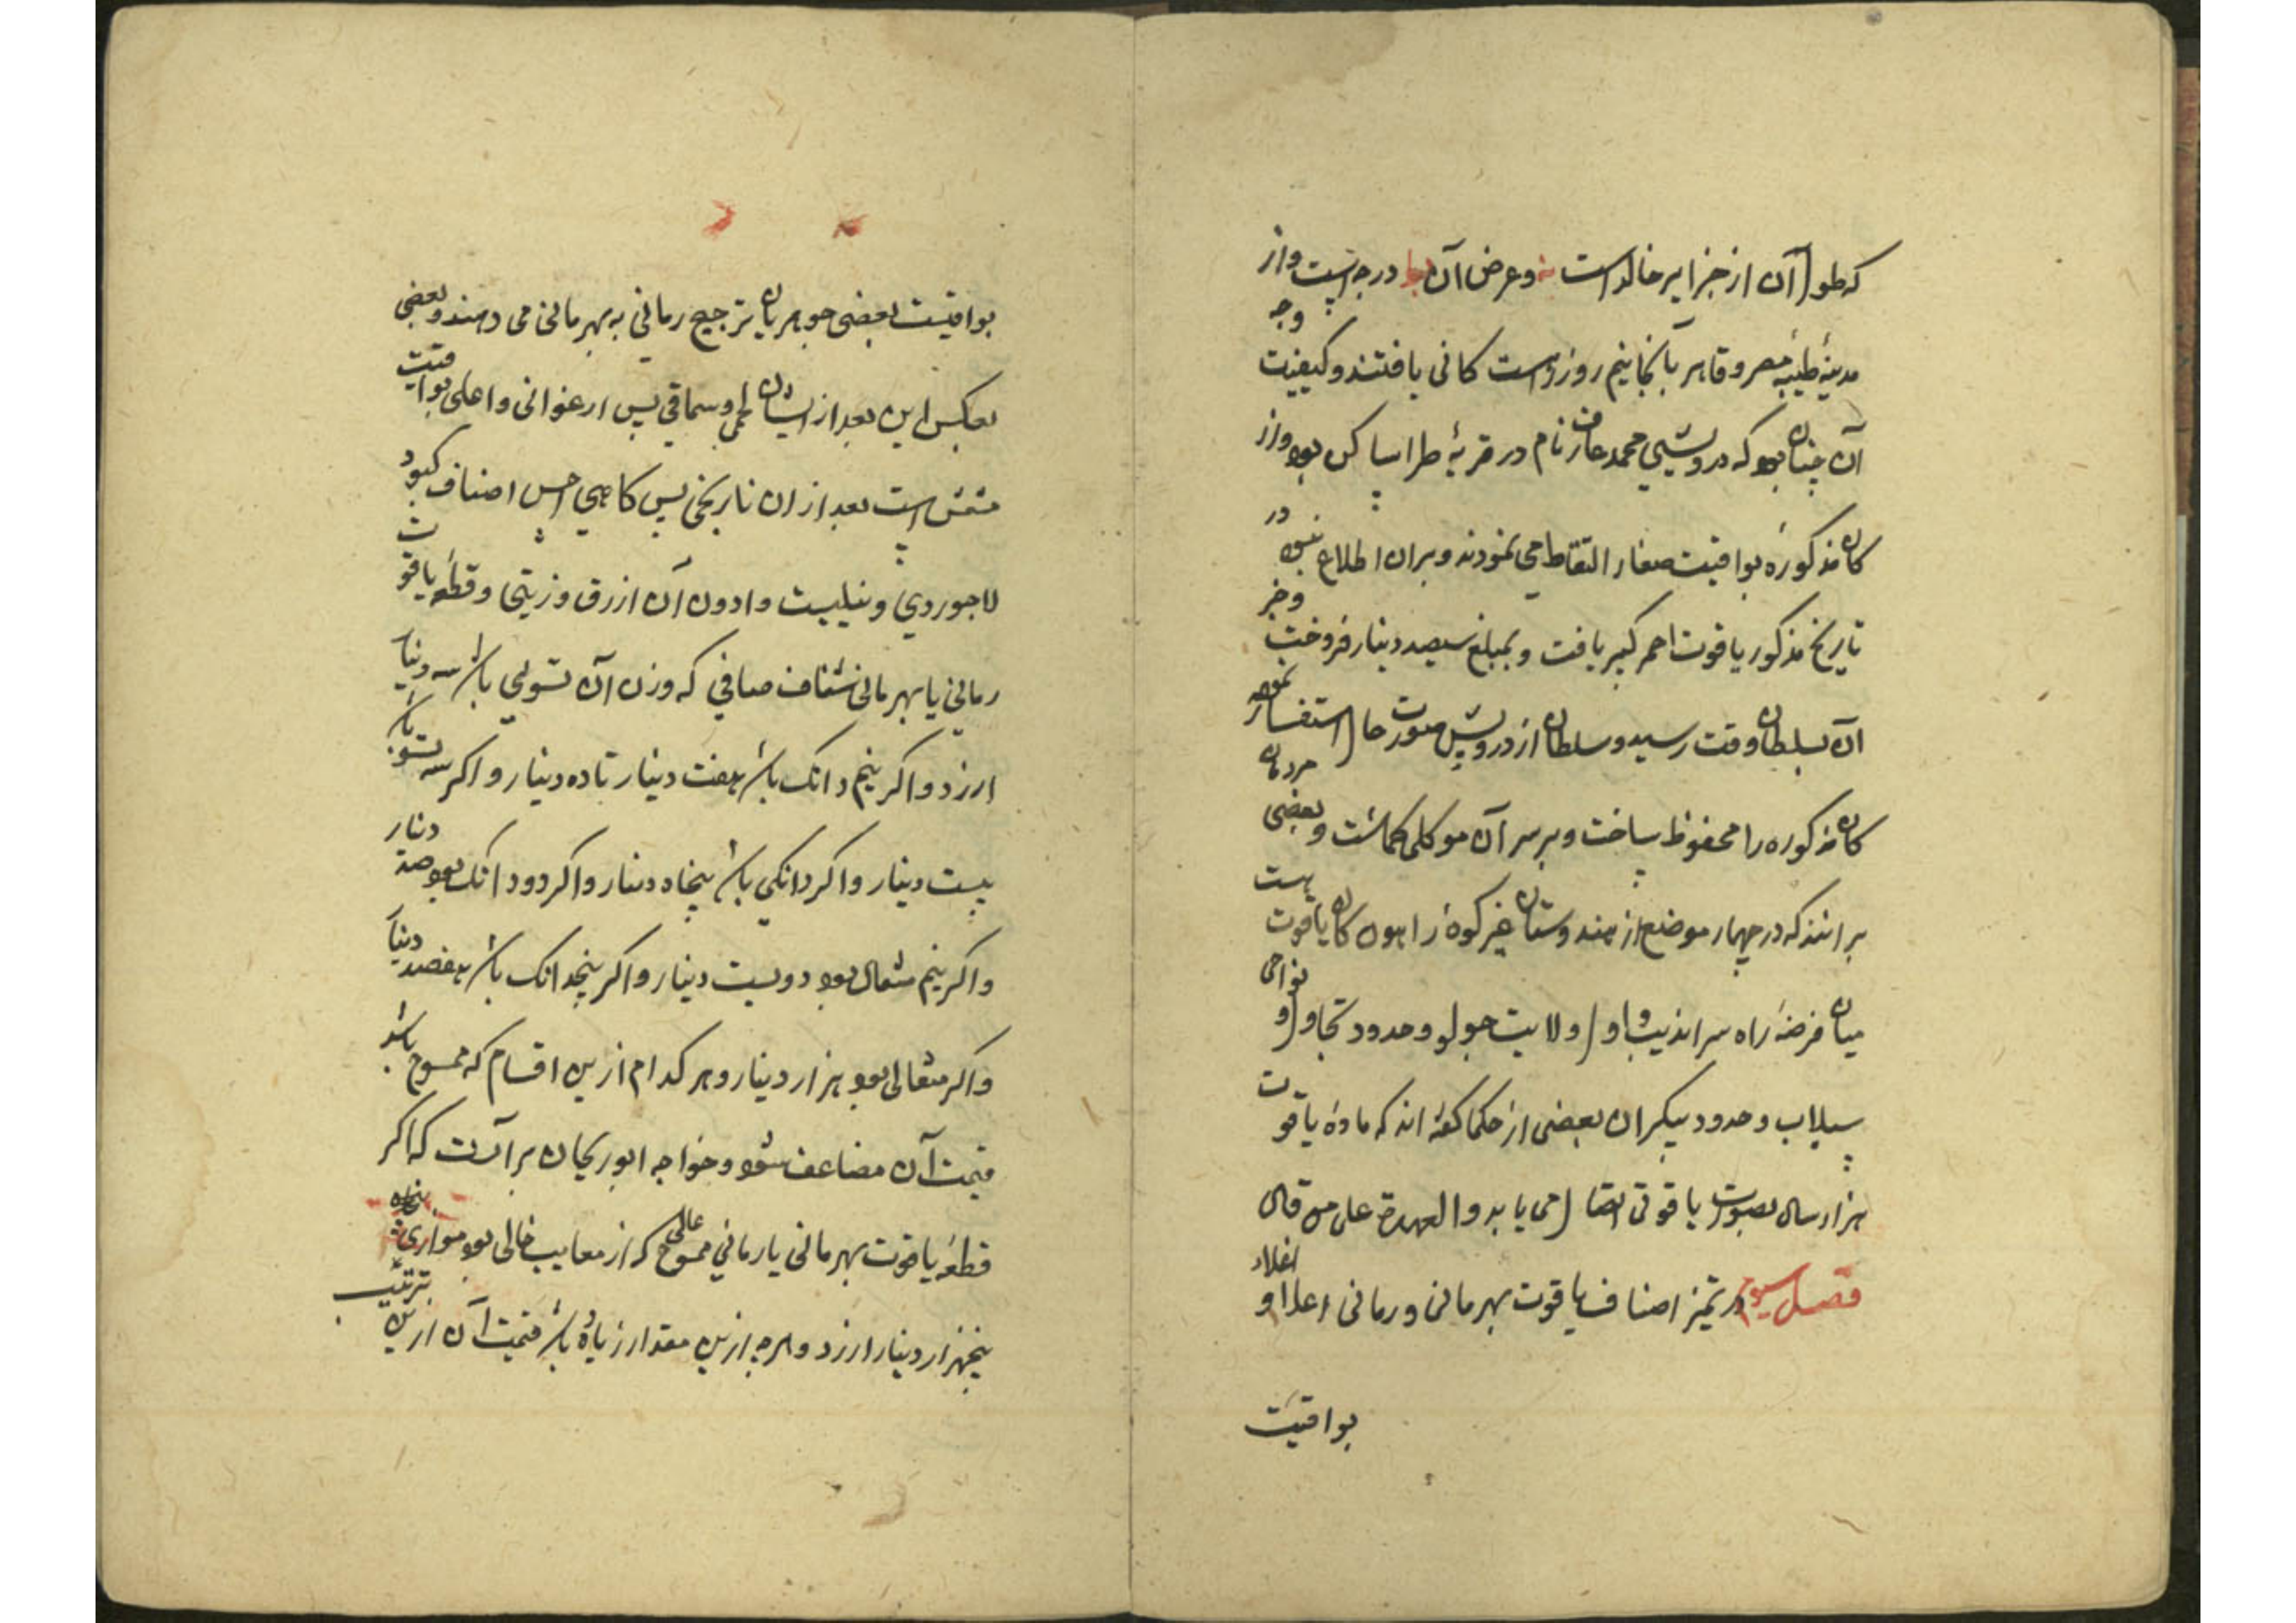 که طول آن از جزایر خالدات است نه و عرض آن لط درجه است و از
مدینهٔ طیبهٔ مصر و قاهره تا آنجا نیم روزه راست کانی یافتند و کیفیت وجه
آن چنان بود که درویشی محمد عارف نام در قریهٔ طرا ساکن بود و از
کان مذکوره یواقیت صغار التقاط می نمودند و بران اطلاع نبود در
تاریخ مذکور یاقوت احمر کبیر یافت و بمبلغ سیصد دینار فروخت و خبر
آن بسلطان وقت رسید و سلطان از درویش صورت حال استفسار نموده
کان مذکوره را محفوظ ساخت و بر سر آن موکلی گماشت و بعضی مردمان
برانند که در چهار موضع از هندوستان غیر کوه راهون کان یاقوت هست
میان فرضهٔ راه سراندیب و اول ولایت جول و حدود تجاول و نواحی
سیلاب و حدود بیکران بعضی از حکما گفته اند که مادهٔ یاقوت
هزار سال بصورت یاقوتی اتصال می یابد والعهدة علی من قال
فصل سیوم در تمیز اصناف یاقوت بهرمانی و رمانی اعلا و اغلاء
یواقیت
یواقیت بعضی جوهریان ترجیح رمانی به بهرمانی می دهند و بعضی
بعکس این بعد از ایشان لحمی و سماقی پس ارغوانی و اعلی یواقیت
مشمشی است بعد از ان نارنجی پس کاهی احسن اصناف کبود
لاجوردی و نیلیست و ادون آن ازرق و زیتی و قطعهٔ یاقوت
رمانی یا بهرمانی شفاف صافی که وزن آن تسوئی باشد سه دینار
ارزد و اکر نیم دانک باشد هفت دینار تا ده دینار و اکر سه تسو باشد
بیست دینار و اکر دانکی باشد پنجاه دینار و اکر دو دانک بود صد دینار
و اکر نیم مثقال بود دویست دینار و اکر پنجدانک باشد هفصد دینار
و اکر مثقالی بود هزار دینار و هر کدام ازین اقسام که ممسوح باشد
قیمت آن مضاعف شود و خواجه ابوریحان برآنست که اکر
قطعهٔ یاقوت بهرمانی یا رمانی ممسوح عالی که از معایب خالی بود موازی پنجاه
پنجهزار دینار ارزد و هرچه ازین مقدار زیاده باشد قیمت آن ازین ترتیب